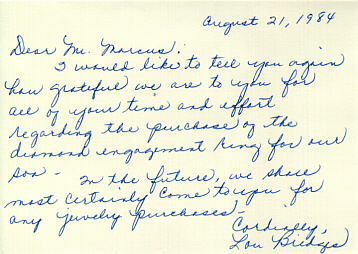 August 21, 1984
Dear Mr. Marcus:
I would like to tell you again
how grateful we are to you for
all of your time and effort
regarding the purchase of the
diamond engagement ring for our
son -
In the future, we shall
most certainly come to you for
any jewelry purchases.
Cordially,
Lou